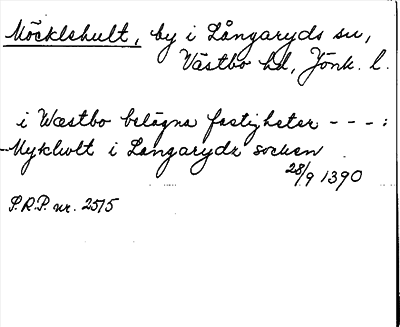 Möcklehult, by i Långaryds sn,
Västbo hd, Jönk. l.
i Wæstbo belägna fastigheter - - - :
Myklholt i Langarydz socken
28/9 1390
S.R.P. nr. 2515